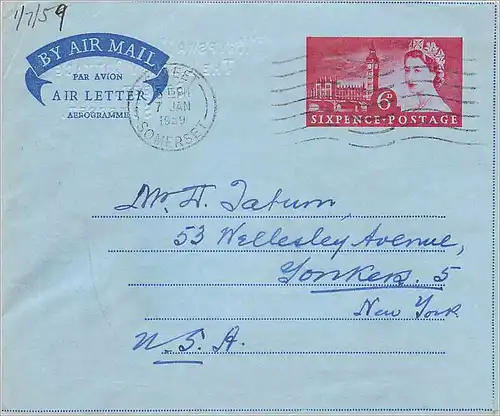 1/7/59
BY AIR MAIL
PAR AVION
AIR LETTER
AEROGRAMME
7 JAN
1959
SOMERSET
6D
SIXPENCE·POSTAGE
Mr. H. Tatum,
53 Wellesley Avenue,
Yonkers. 5
New York
U.S.A.